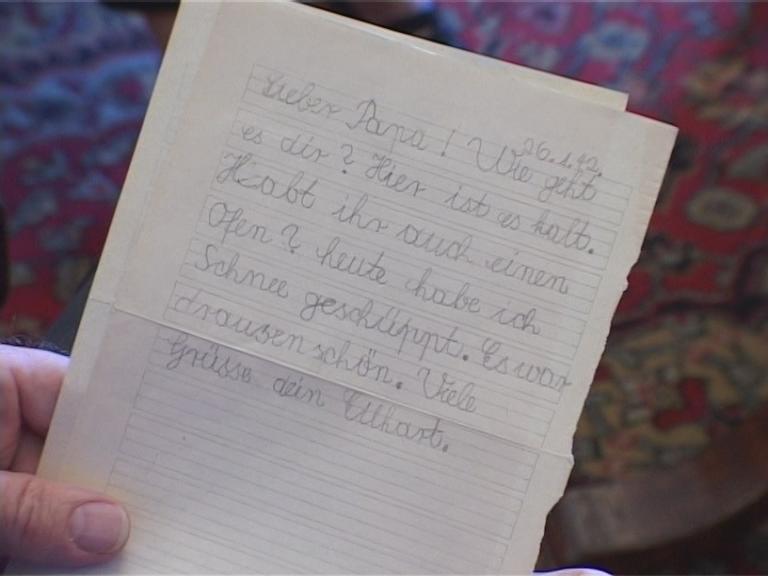 26.1.42.
Lieber Papa! Wie geht
es dir? Hier ist es kalt.
Habt ihr auch einen
Ofen? heute habe ich
Schnee geschüppt. Es war
drauzen schön. Viele
Grüsse dein Elkhart.